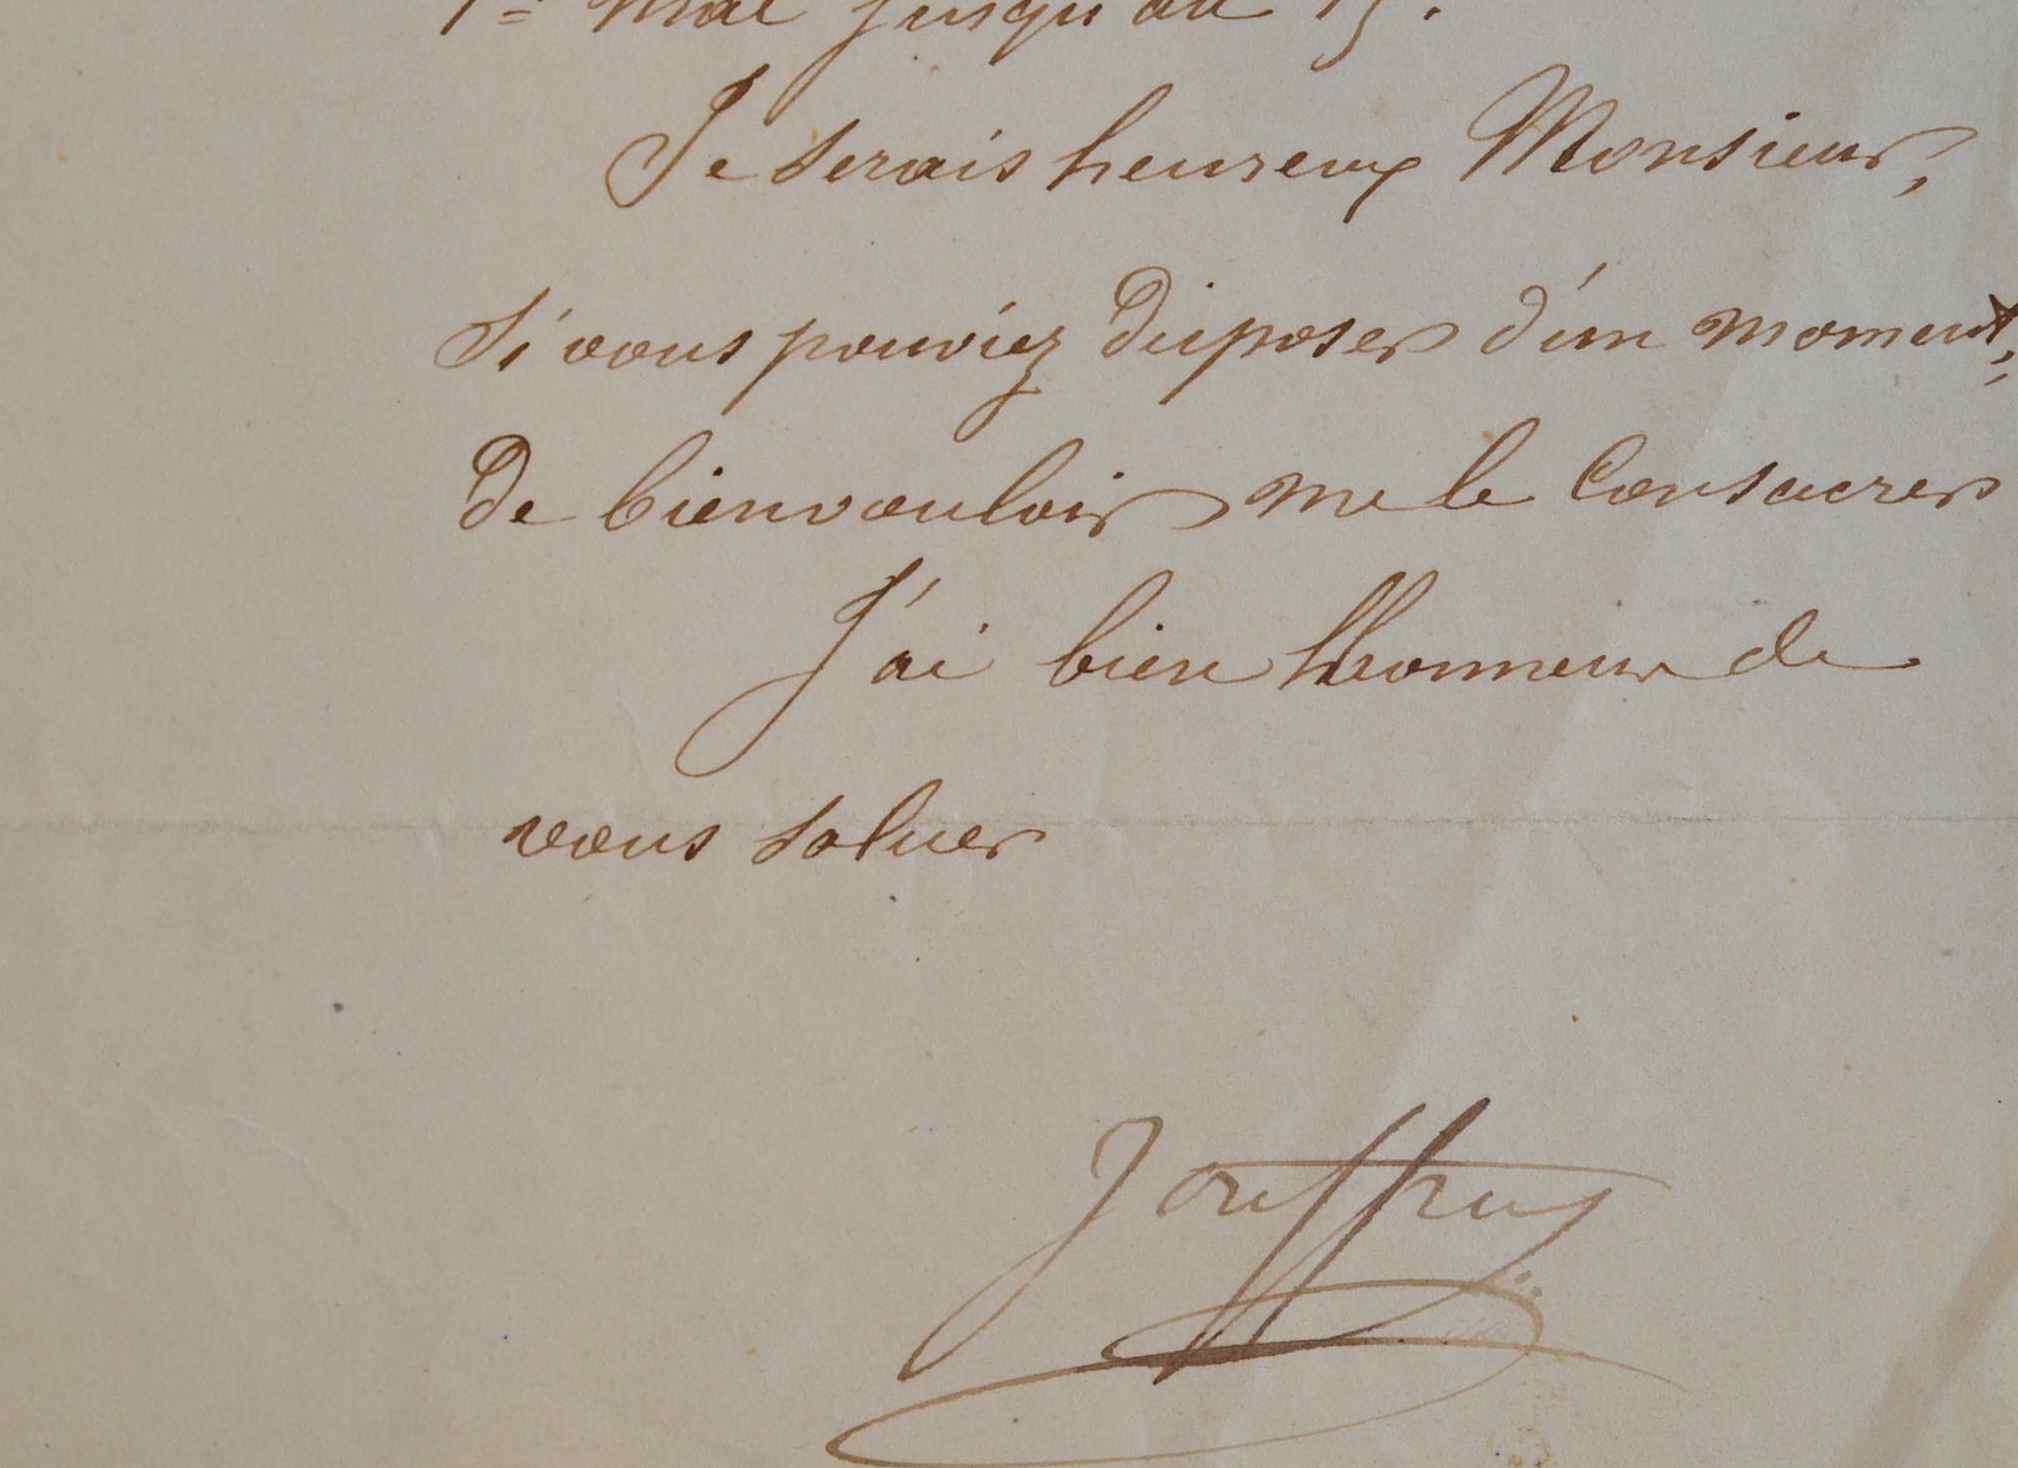 1er Mai jusqu'au 15.
Je serais heureux Monsieur,
Si vous pouviez disposer d'un moment,
de bien vouloir me le Consacrer
J'ai bien l'honneur de
vous saluer
Jouffruy